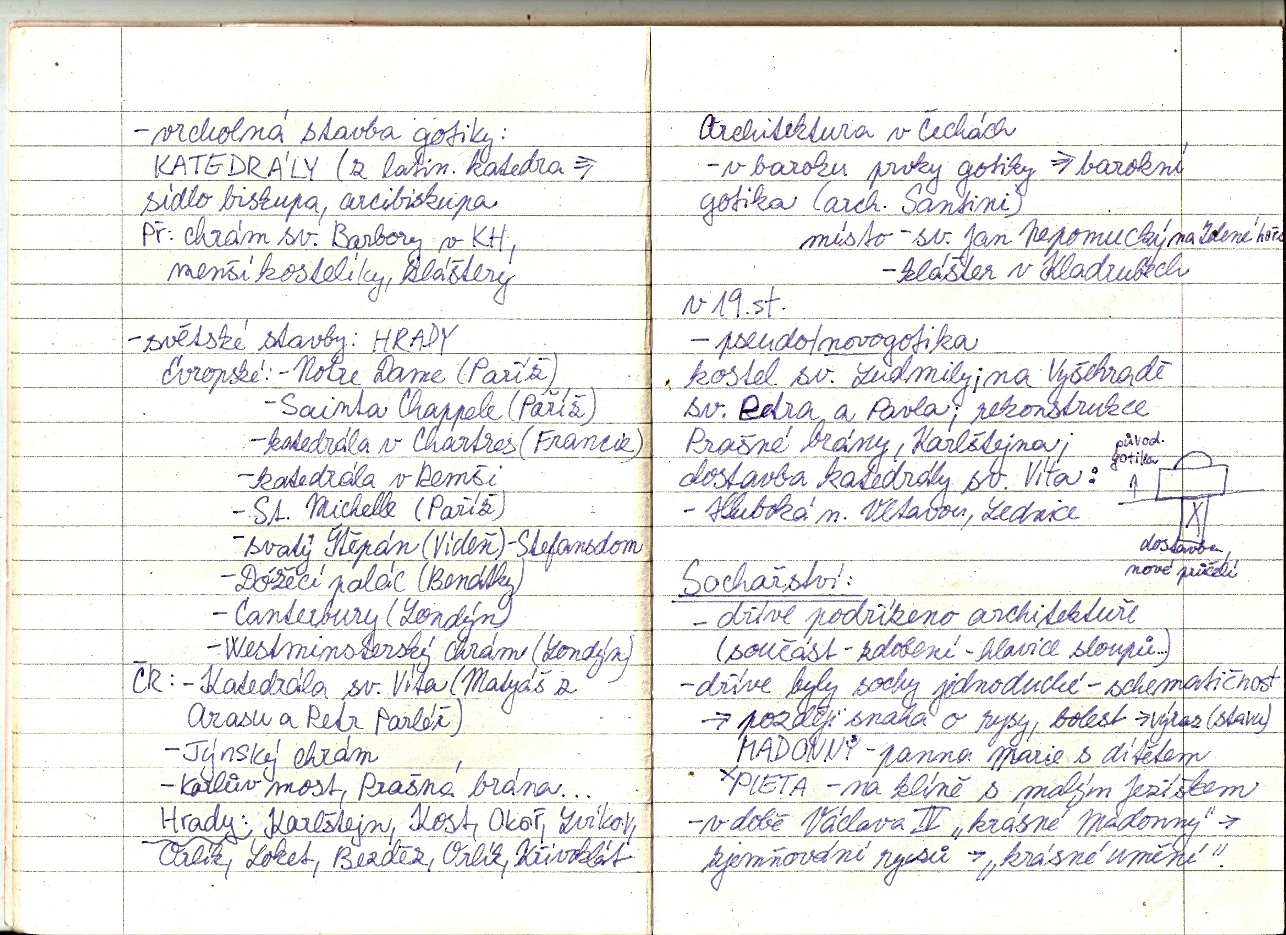 - vrcholná stavba gotiky:
KATEDRÁLY (z latin. katedra ⇒
sídlo biskupa, arcibiskupa
Př: chrám sv. Barbory v KH,
menší kostelíky, kláštery
- světské stavby: HRADY
Evropské: - Notre Dame (Paříž)
- Sainta Chappele (Paříž)
- katedrála v Chartres (Francie)
- katedrála v Remši
- St. Michelle (Paříž)
- svatý Štěpán (Vídeň) - Stefansdom
- Dóžecí palác (Benátky)
- Canterbury (Londýn)
- Westminsterský chrám (Londýn)
ČR: - Katedrála sv. Víta (Matyáš z
Arasu a Petr Parléř)
- Týnský chrám
- Karlův most, Prašná brána...
Hrady: Karlštejn, Kost, Okoř, Zvíkov,
Orlík, Loket, Bezděz, Orlík, Křivoklát
Architektura v Čechách
- v baroku prvky gotiky ⇒ barokní
gotika (arch. Santini)
místo - sv. Jan Nepomucký na Zelené hoře
- klášter v Kladrubech
v 19. st.
- pseudo/novogotika
kostel sv. Ludmily; na Vyšehradě
sv. Petra a Pavla; rekonstrukce
Prašné brány, Karlštejna;
dostavba katedrály sv. Víta:
- Hluboká n. Vltavou, Lednice
původ.
gotika
↑
X
dostavba,
nové průčelí
Sochařství:
- dříve podřízeno architektuře
(součást - zdobení - hlavice sloupů...)
- dříve byly sochy jednoduché - schematičnost
→ později snaha o rysy, bolest → výraz (stavu)
MADONNY - panna Marie s dítětem
x PIETA - na klíně s malým Ježíškem
- v době Václava IV „krásné Madonny" →
zjemňování rysů → „krásné umění".